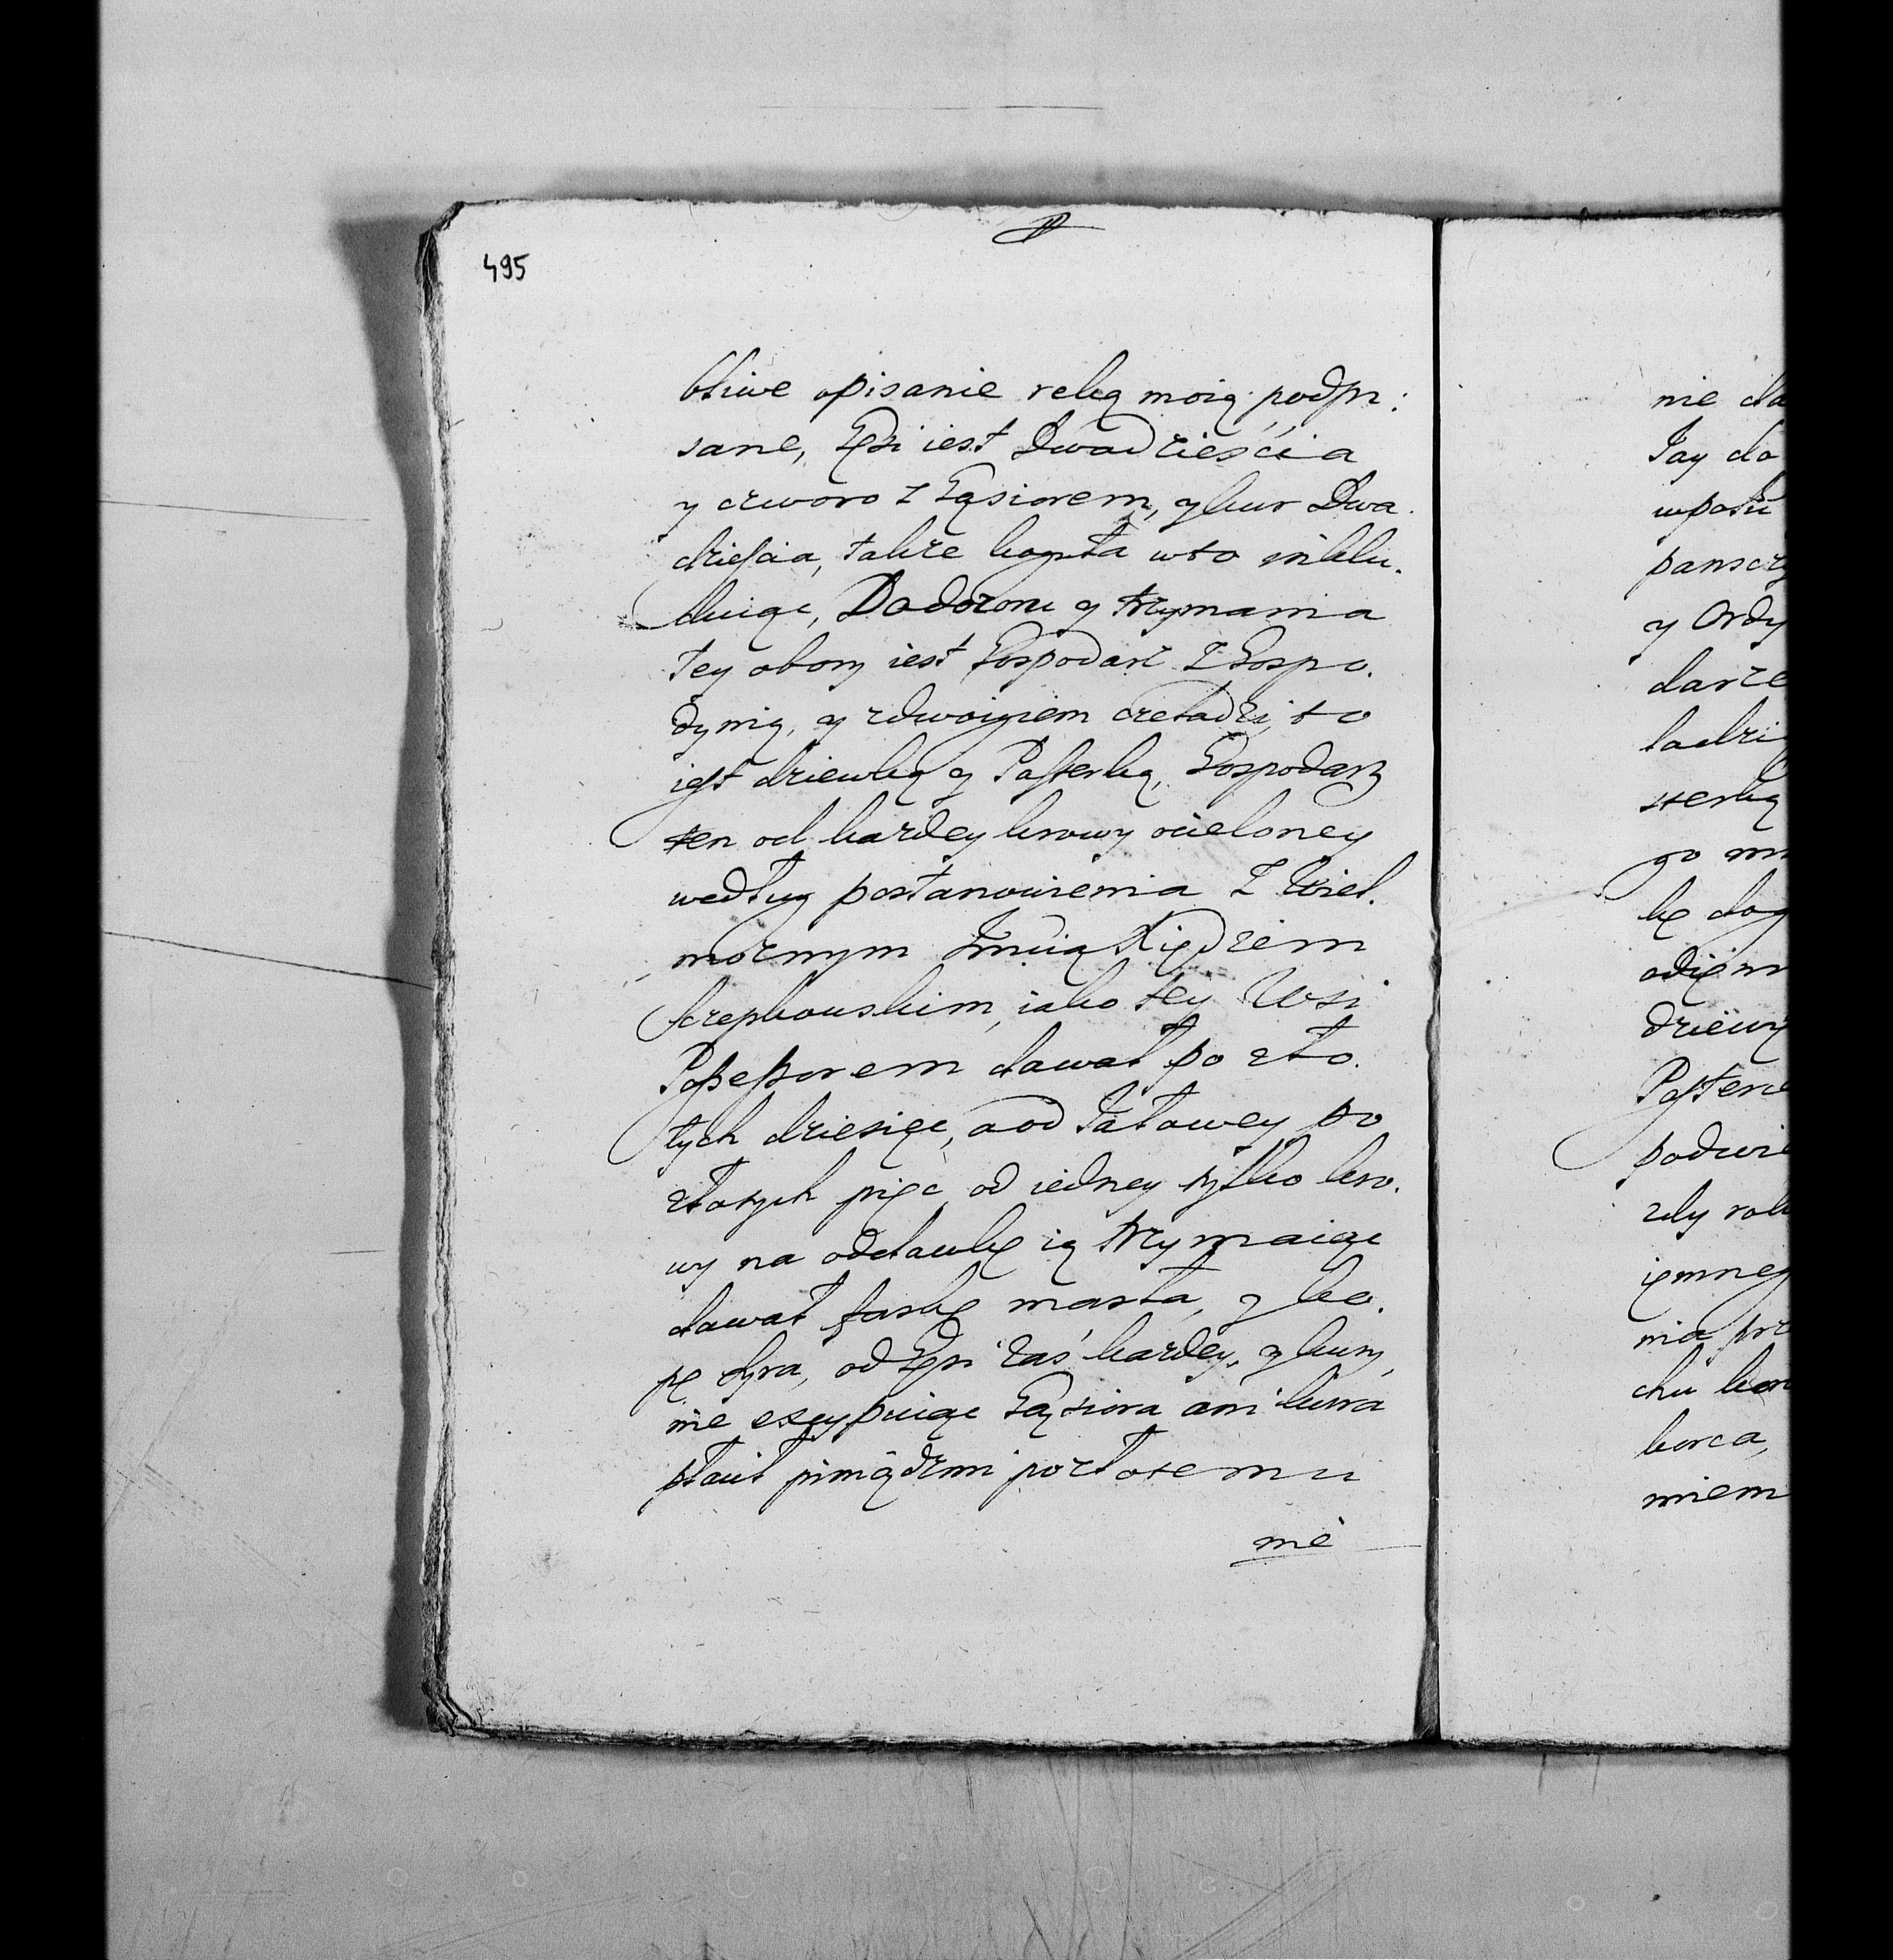 495
bliwe opisanie ręką moią podpi:
sane, Gęsi iest Dwadzieścia
y czworo z Gąsiorem, y kur Dwa.
dzieścia, także koguta w to inklu.
duiąc, Do dozoru y trzymania
tey obory iest Gospodarz z Gospo.
dynią, y z dwoygiem czeladzi, to
iest dziewką y Pasterką, Gospodarz
ten od każdey krowy ocieloney
według postanowienia z Wiel.
możnym Jmcią Xiędzem
Szczepkowskim, iako tey Wsi
Possessorem dawał po zło.
tych dziesięc, a od Jałowey po
złotych pięc, od iedney tylko kro.
wy na odstawkę ią trzymaiąc
dawał faskę masła, y ko.
pę syra, od Gęsi zaś każdey, y kury,
nie excypuiąc Gąsiora ani kura
płacił pieniądzmi po złotemu
nie
nie da
Jay do
w posu
panszczy
y Ordy
darze
ladzi
sterką
go
kę dog
odięm
dziewi
Pasterc
podwie
zdy rok
iemney
nia prz
chu kon
korca,
niem